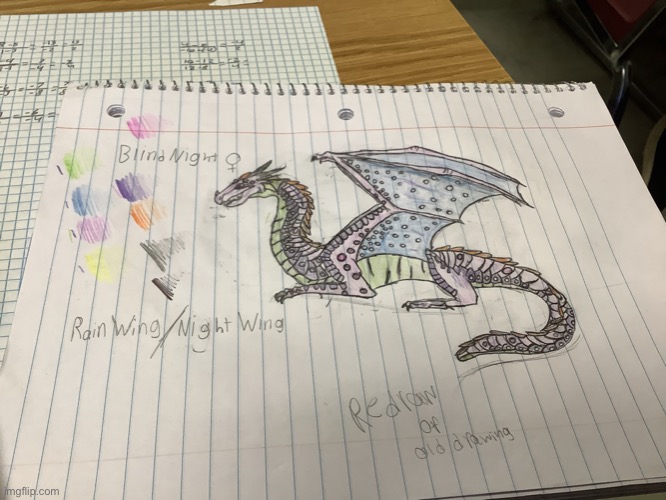 BlindNight ♀
RainWing/NightWing
Redraw
of
old drawing
imgflip.com